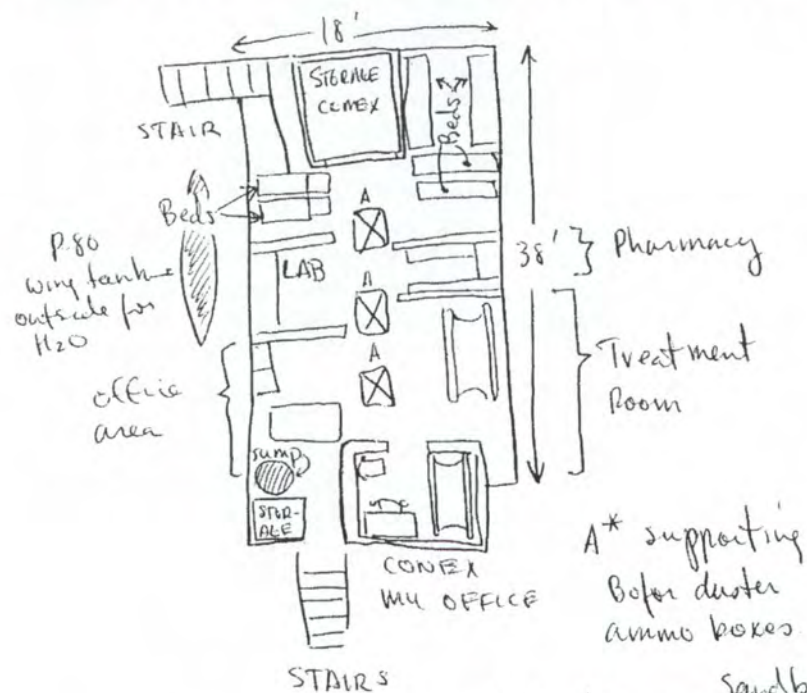 18'
STORAGE
CONEX
Beds
STAIR
Beds
A
P.80
wing tank
outside for
H2O
LAB
38'
Pharmacy
A
Treatment
Room
A
office
area
sump
STOR-
AGE
CONEX
MY OFFICE
A* supporting
Bofor duster
ammo boxes
STAIRS